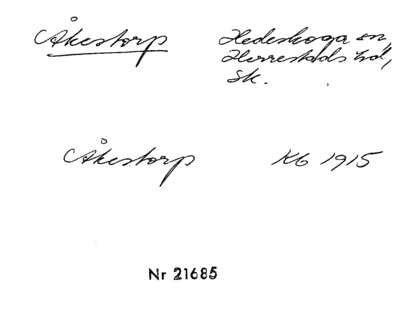 Åkestorp Hedeskoga sn,
Herrestads hd,
Sk.
Åkestorp KB 1915
Nr 21685